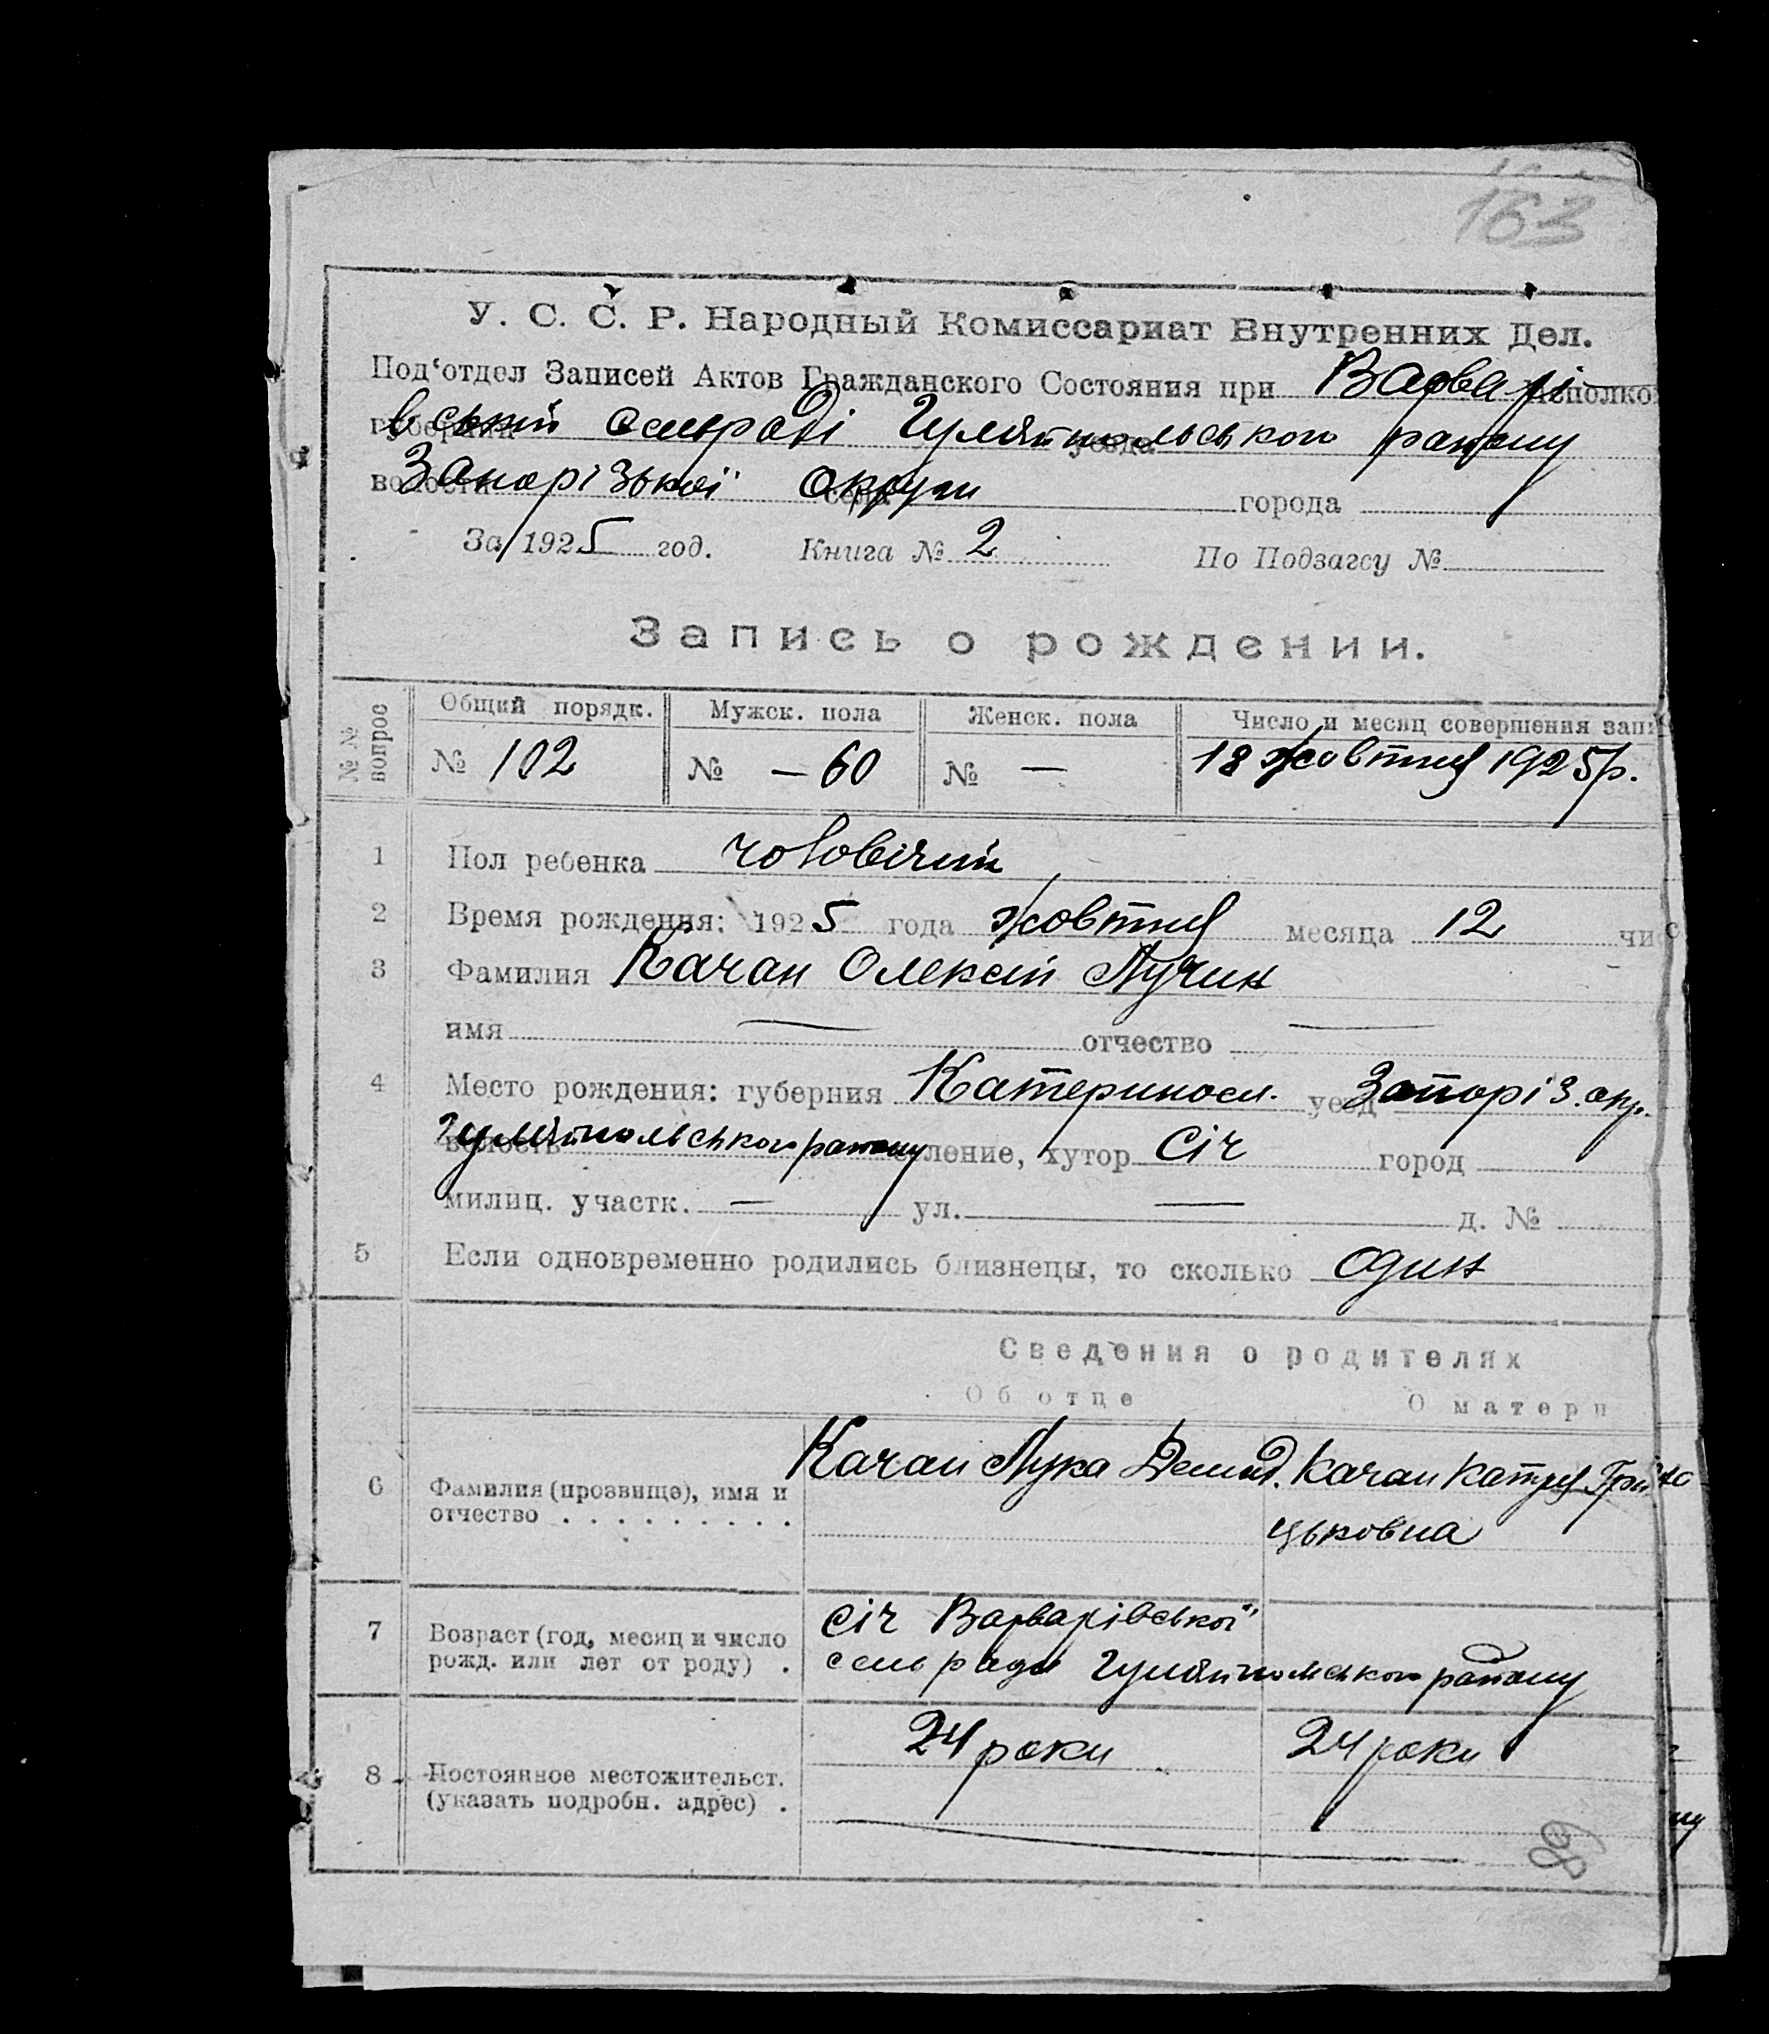 163
У. С. С. Р. Народный Комиссариат Внутренних Дел.
Под‘отдел Записей Актов Гражданского Состояния при Варварі- исполко
губернии вській сельраді уезда Гуляйпольського району
волости Запорізької села округи города
За 1925 год. Книга № 2 По Подзагсу №
Запись о рождении.
№ № вопрос
Общий порядк. Мужск. пола Женск. пола Число и месяц совершения запи
№ 102 № — 60 № — 18 жовтня 1925 р.
1 Пол ребенка чоловічий
2 Время рождения: 1925 года жовтня месяца 12 чис
3 Фамилия Качан Олексій Лучин
имя — отчество —
4 Место рождения: губерния Катериносл. уезд Запоріз. окр.
волость Гуляйпольського району селение, хутор Січ город
милиц. участк. — ул. — д. №
5 Если одновременно родились близнецы, то сколько один
Сведения о родителях
Об отце О матери
6 Фамилия (прозвище), имя и отчество . . . . . . . . . .
Качан Лука Демид. Качан Катря Гри
цьковна
7 Возраст (год, месяц и число рожд. или лет от роду) .
Січ Варварівської
сельради Гуляйпольського району
8 Постоянное местожительст. (указать подробн. адрес) .
24 роки 24 роки